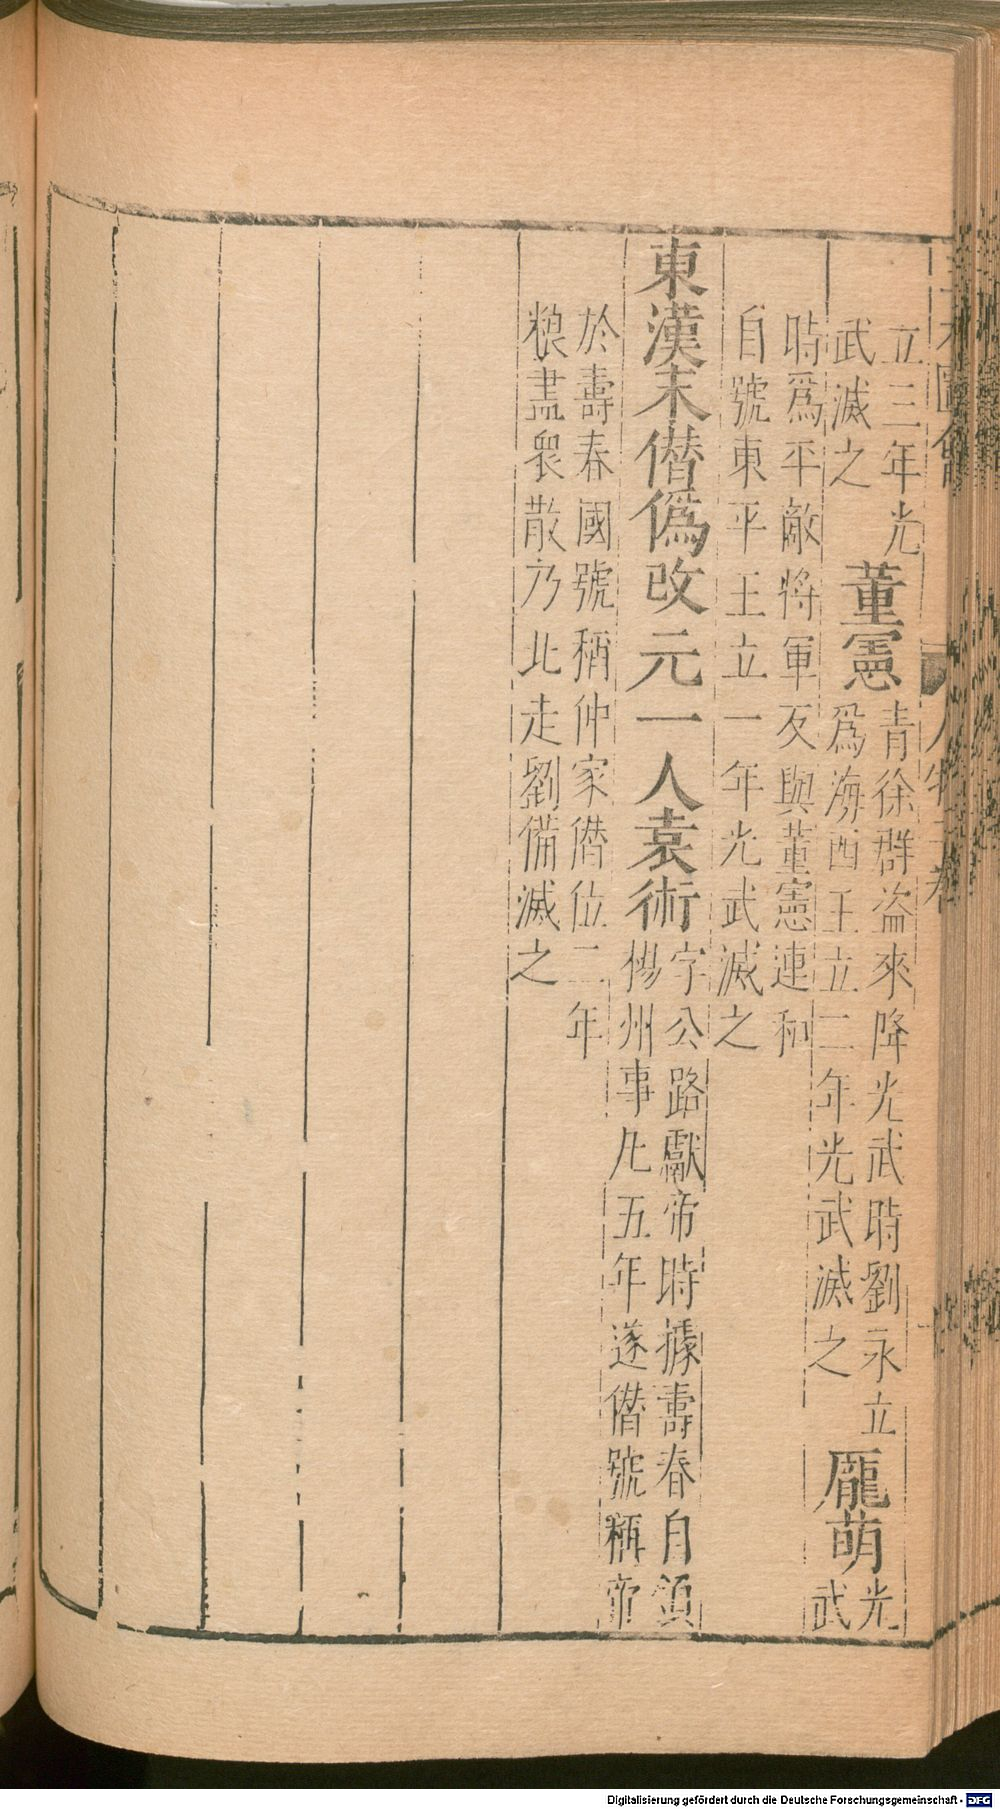 立三年光
武滅之
董憲
青徐群盗來降光武時劉永立
爲海西王立二年光武滅之
龎萌
光
武
時爲平敵將軍反與董憲連和
自號東平王立一年光武滅之
東漢末僣偽改元一人袁術
字公路獻帝時據壽春自領
楊州事凡五年遂僣號稱帝
於壽春國號稱仲家僣位二年
粮盡衆散乃北走劉備滅之
Digitalisierung gefördert durch die Deutsche Forschungsgemeinschaft - DFG